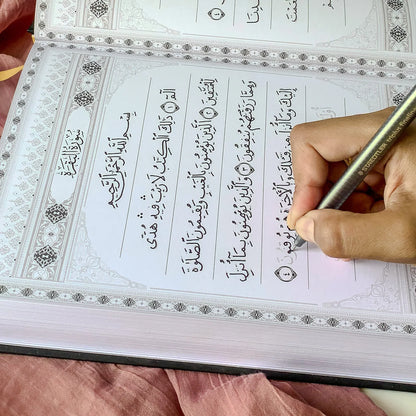 سُورَةُ الْبَقَرَةِ
بِسْمِ اللَّهِ الرَّحْمَٰنِ الرَّحِيمِ
الٓمٓ ١ ذَٰلِكَ الْكِتَٰبُ لَا رَيْبَ فِيهِ هُدًى
لِّلْمُتَّقِينَ ٢ الَّذِينَ يُؤْمِنُونَ بِالْغَيْبِ وَيُقِيمُونَ الصَّلَوٰةَ
وَمِمَّا رَزَقْنَٰهُمْ يُنفِقُونَ ٣ وَالَّذِينَ يُؤْمِنُونَ بِمَآ أُنزِلَ
إِلَيْكَ وَمَآ أُنزِلَ مِن قَبْلِكَ وَبِالْأَخِرَةِ هُمْ يُوقِنُونَ ٤
STAEDTLER